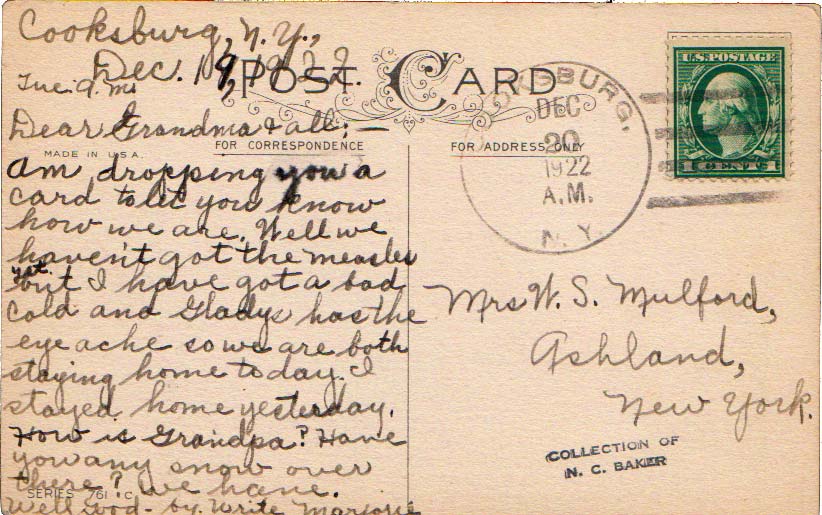 Cooksburg, N.Y.,
Dec. 19, 1922.
Tue. a.m.
POST CARD
Dear Grandma & all; —
MADE IN U.S.A.
FOR CORRESPONDENCE
am dropping you a
card to let you know
how we are. Well we
haven't got the measles
yet but I have got a bad
cold and Gladys has the
eye ache so we are both
staying home today. I
stayed home yesterday.
How is Grandpa? Have
you any snow over
there? We have.
SERIES 761 C
Well good-by. Write Marjorie
FOR ADDRESS ONLY
COOKSBURG,
DEC
20
1922
A.M.
N.Y.
U.S. POSTAGE
1 CENT 1
Mrs W. S. Mulford,
Ashland,
New York.
COLLECTION OF
N. C. BAKER